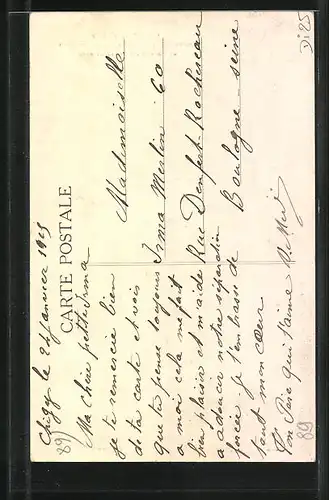 Di 25
CARTE POSTALE
Chigy le 21 Janvier 1915
Ma chère petite Irma
je te remercie bien
de ta carte et vois
que tu pense toujours
a moi cela me fait
bien plaisir et m'aide
a adoucir notre séparation
forcée je t'embrasse de
tout mon cœur
Ton Père qui t'aime
Mademoiselle
Irma Merlin 60
Rue Denfert-Rochereau
Boulogne Seine
89
89